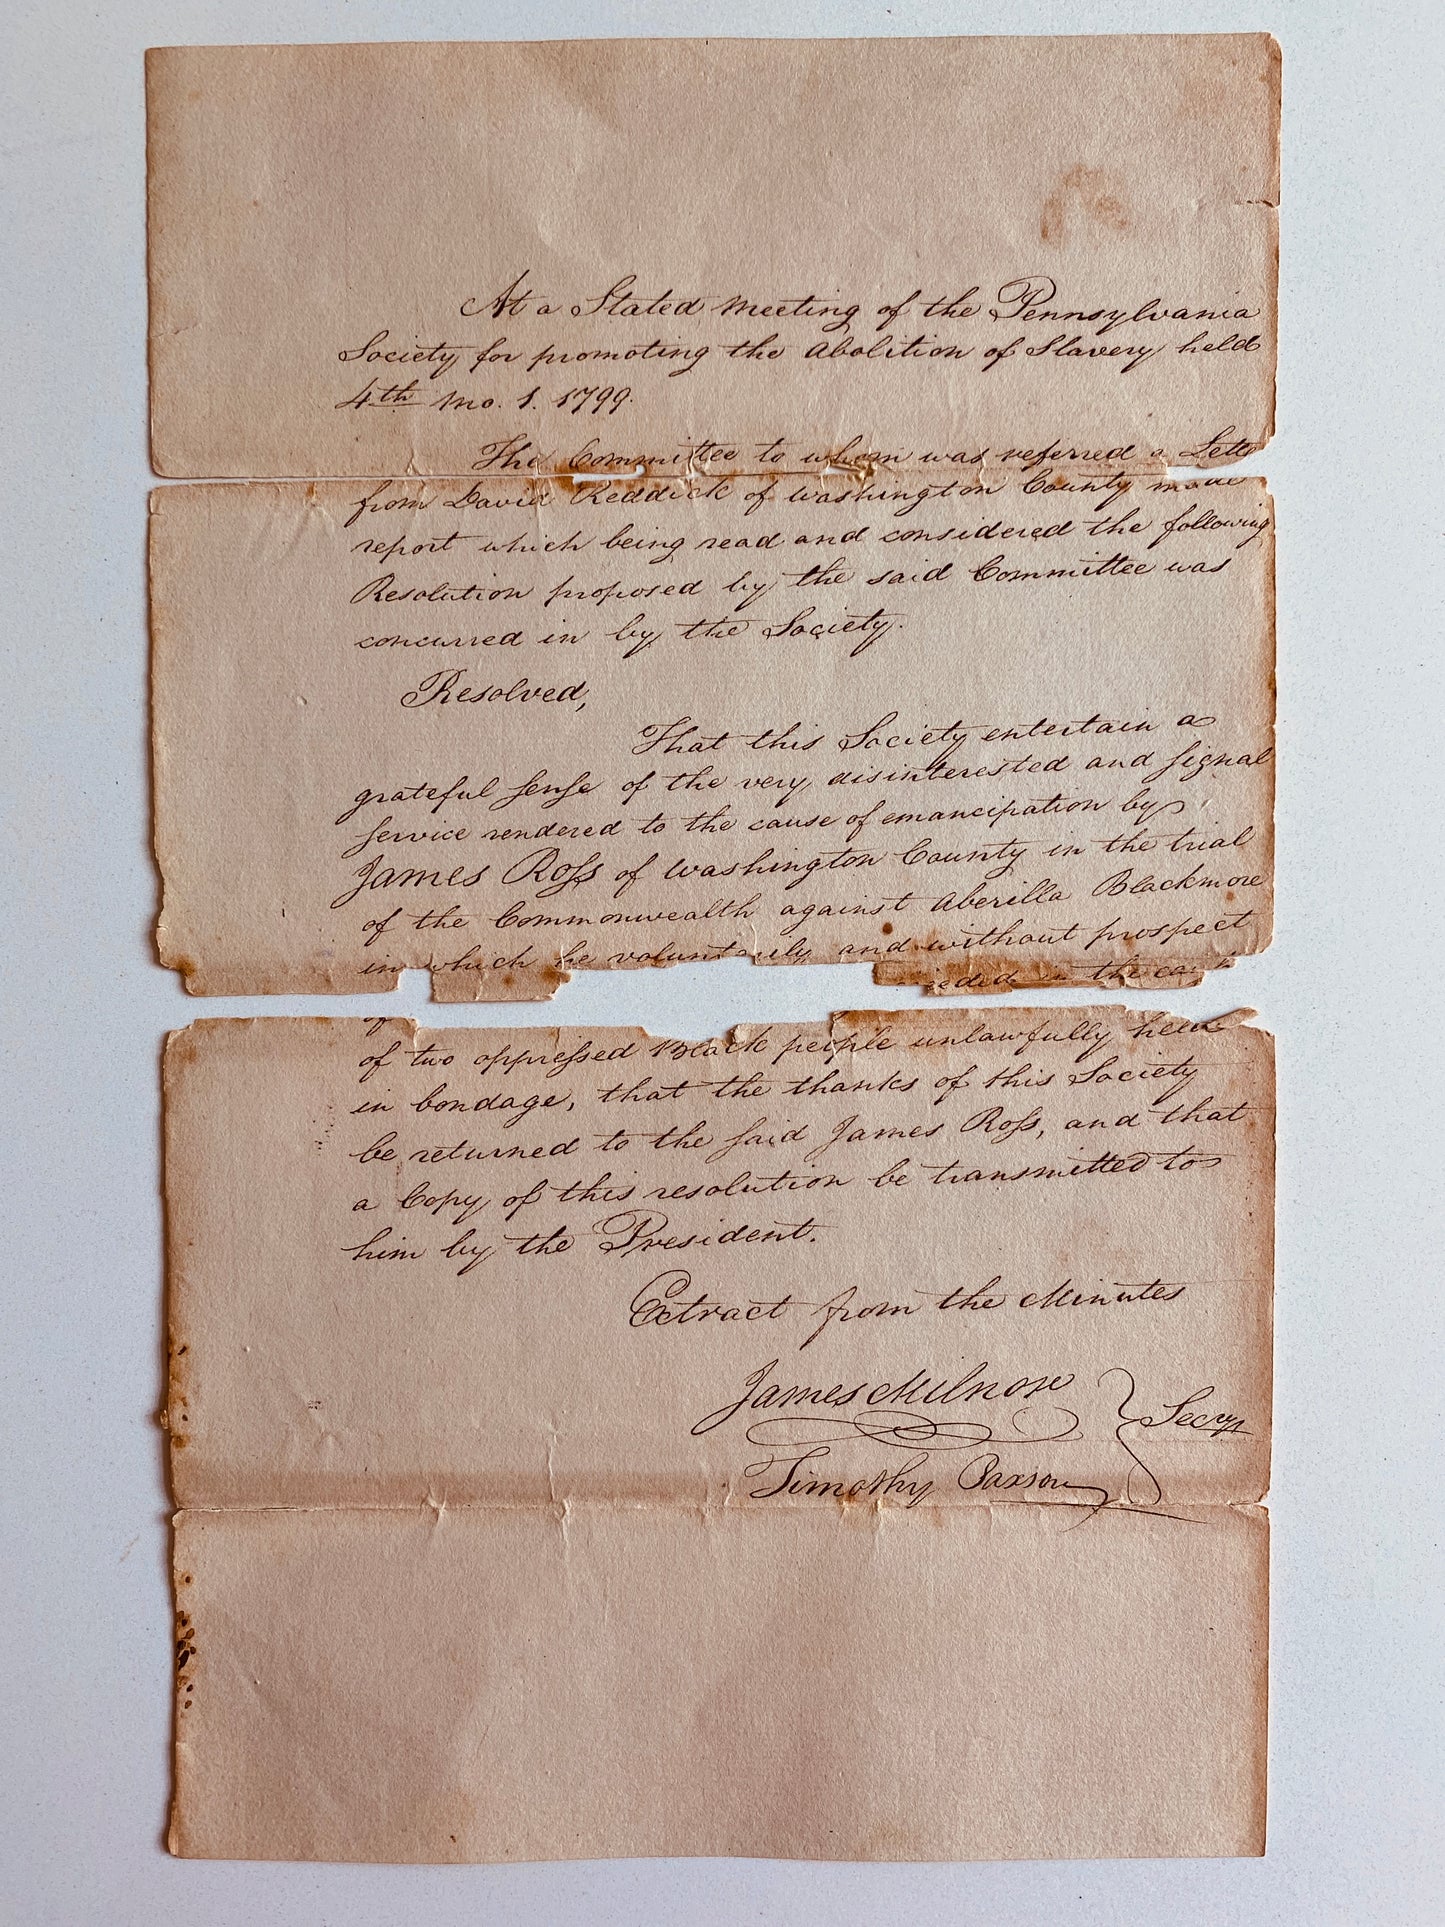 At a Stated Meeting of the Pennsylvania
Society for promoting the Abolition of Slavery held
4th Mo. 1. 1799.
The Committee to whom was referred a Lette
from David Reddick of Washington County made
report which being read and considered the following
Resolution proposed by the said Committee was
concurred in by the Society.
Resolved,
That this Society entertain a
grateful sense of the very disinterested and signal
service rendered to the cause of emancipation by
James Ross of Washington County in the trial
of the Commonwealth against Aberilla Blackmore
in which he voluntarily and without prospect
in the
of two oppressed Black people unlawfully held
in bondage, that the thanks of this Society
be returned to the said James Ross, and that
a Copy of this resolution be transmitted to
him by the President.
Extract from the Minutes
James Milnor
Secrys
Timothy Paxson